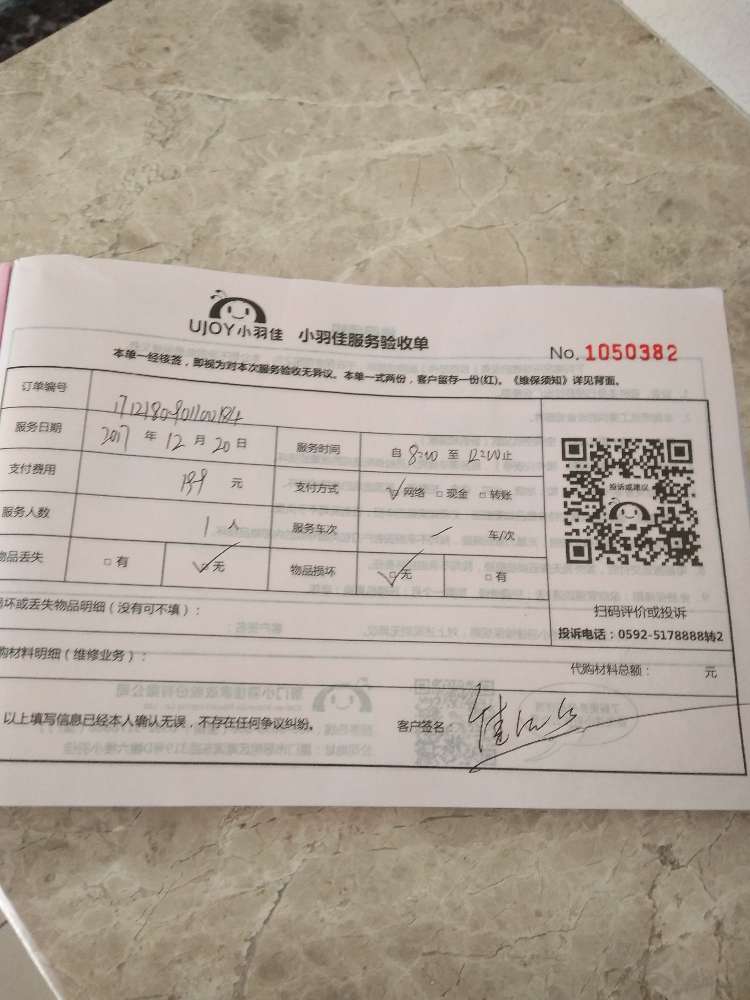 UJOY小羽佳 小羽佳服务验收单
No. 1050382
本单一经接签,即视为对本次服务验收无异议。本单一式两份,客户留存一份(红)。《维保须知》详见背面。
订单编号
服务日期 2017 年 12 月 20 日 服务时间 自 8:00 至 12:00 止
支付费用 199 元 支付方式 网络 □ 现金 □ 转账
服务人数 1 人 服务车次 车/次
物品丢失 □ 有 □ 无 物品损坏 □ 无 □ 有
投诉或建议
扫码评价或投诉
投诉电话:0592-5178888转2
损坏或丢失物品明细(没有可不填):
购材料明细(维修业务): 代购材料总额: 元
以上填写信息已经本人确认无误,不存在任何争议纠纷。 客户签名: